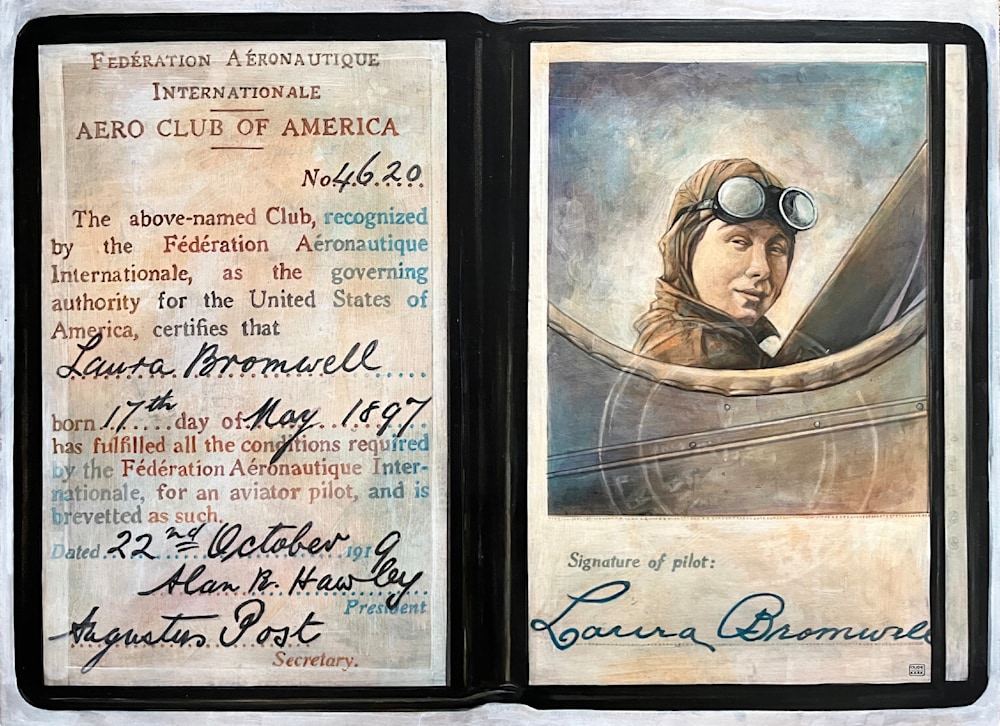 FEDÉRATION AÉRONAUTIQUE
INTERNATIONALE
AERO CLUB OF AMERICA
No 4620
The above-named Club, recognized
by the Fédération Aéronautique
Internationale, as the governing
authority for the United States of
America, certifies that
Laura Bromwell
born 17th day of May 1897
has fulfilled all the conditions required
by the Fédération Aéronautique Inter-
nationale, for an aviator pilot, and is
brevetted as such.
Dated 22nd October 1919
Alan R. Hawley
President
Augustus Post
Secretary.
Signature of pilot:
Laura Bromwell